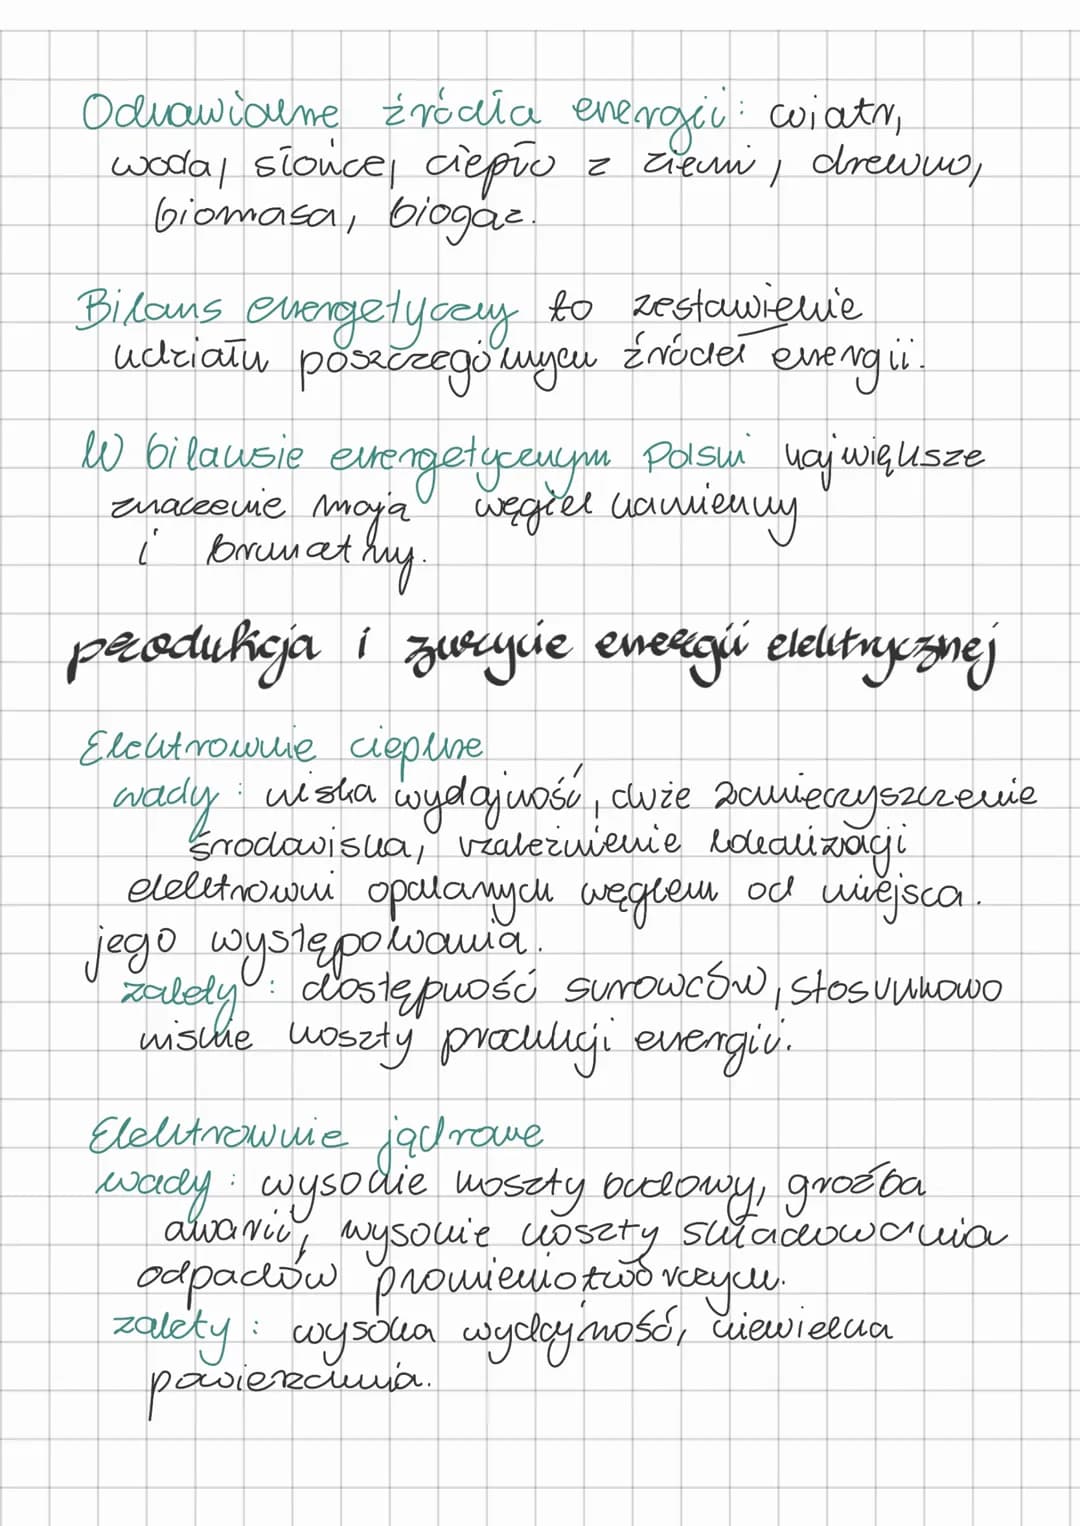 Odnawialne źródła energii: wiatr,
woda, słońce, ciepło z ziemi, drewno,
biomasa, biogaz.
Bilans energetyczny to zestawienie
udziału poszczególnych źródeł energii.
W bilansie energetycznym Polski największe
znaczenie mają węgiel kamienny
i brunatny.
produkcja i zużycie energii elektrycznej
Elektrownie cieplne
wady: niska wydajność, duże zanieczyszczenie
środowiska, uzależnienie lokalizacji
elektrowni opalanych węglem od miejsca.
jego występowania.
zalety: dostępność surowców, stosunkowo
niskie koszty produkcji energii.
Elektrownie jądrowe
wady: wysokie koszty budowy, groźba
awarii, wysokie koszty składowania
odpadów promieniotwórczych.
zalety: wysoka wydajność, niewielka
powierzchnia.